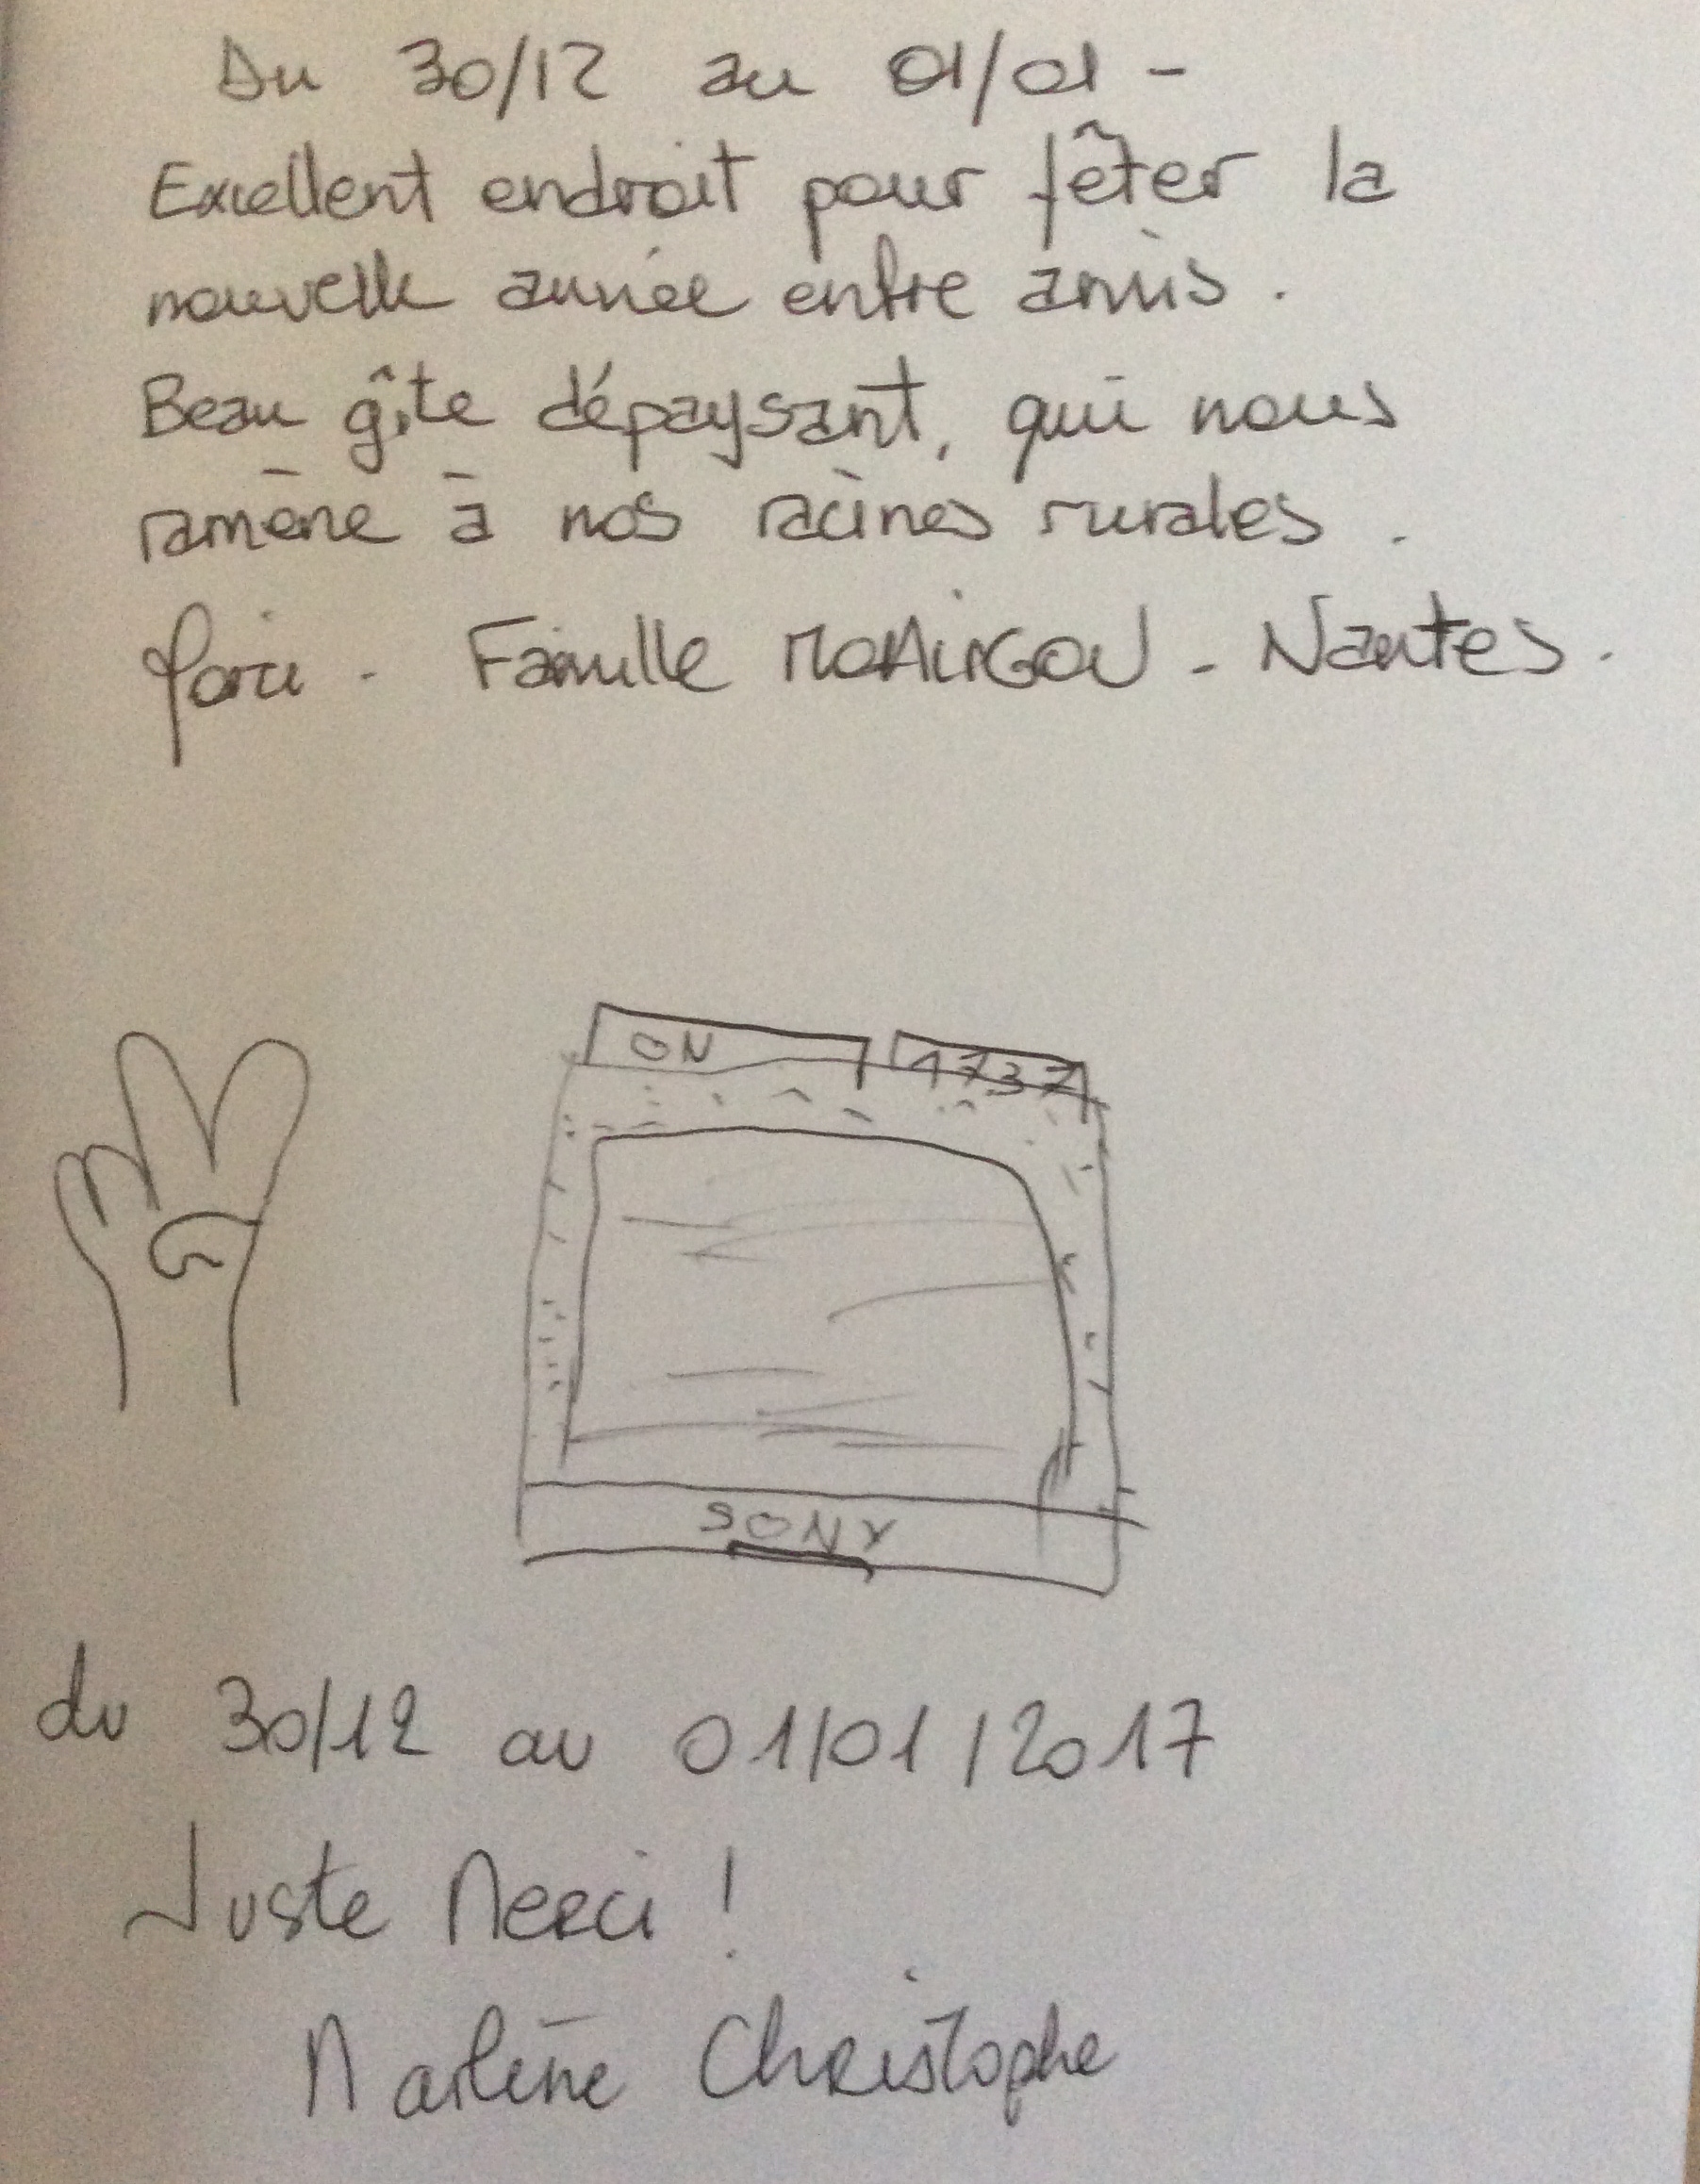 Du 30/12 au 01/01 -
Excellent endroit pour fêter la
nouvelle année entre amis.
Beau gîte dépaysant, qui nous
ramène à nos racines rurales.
Famille - Nantes.
ON 1737
SONY
du 30/12 au 01/01/2017
Juste Merci !
Marlène Christophe